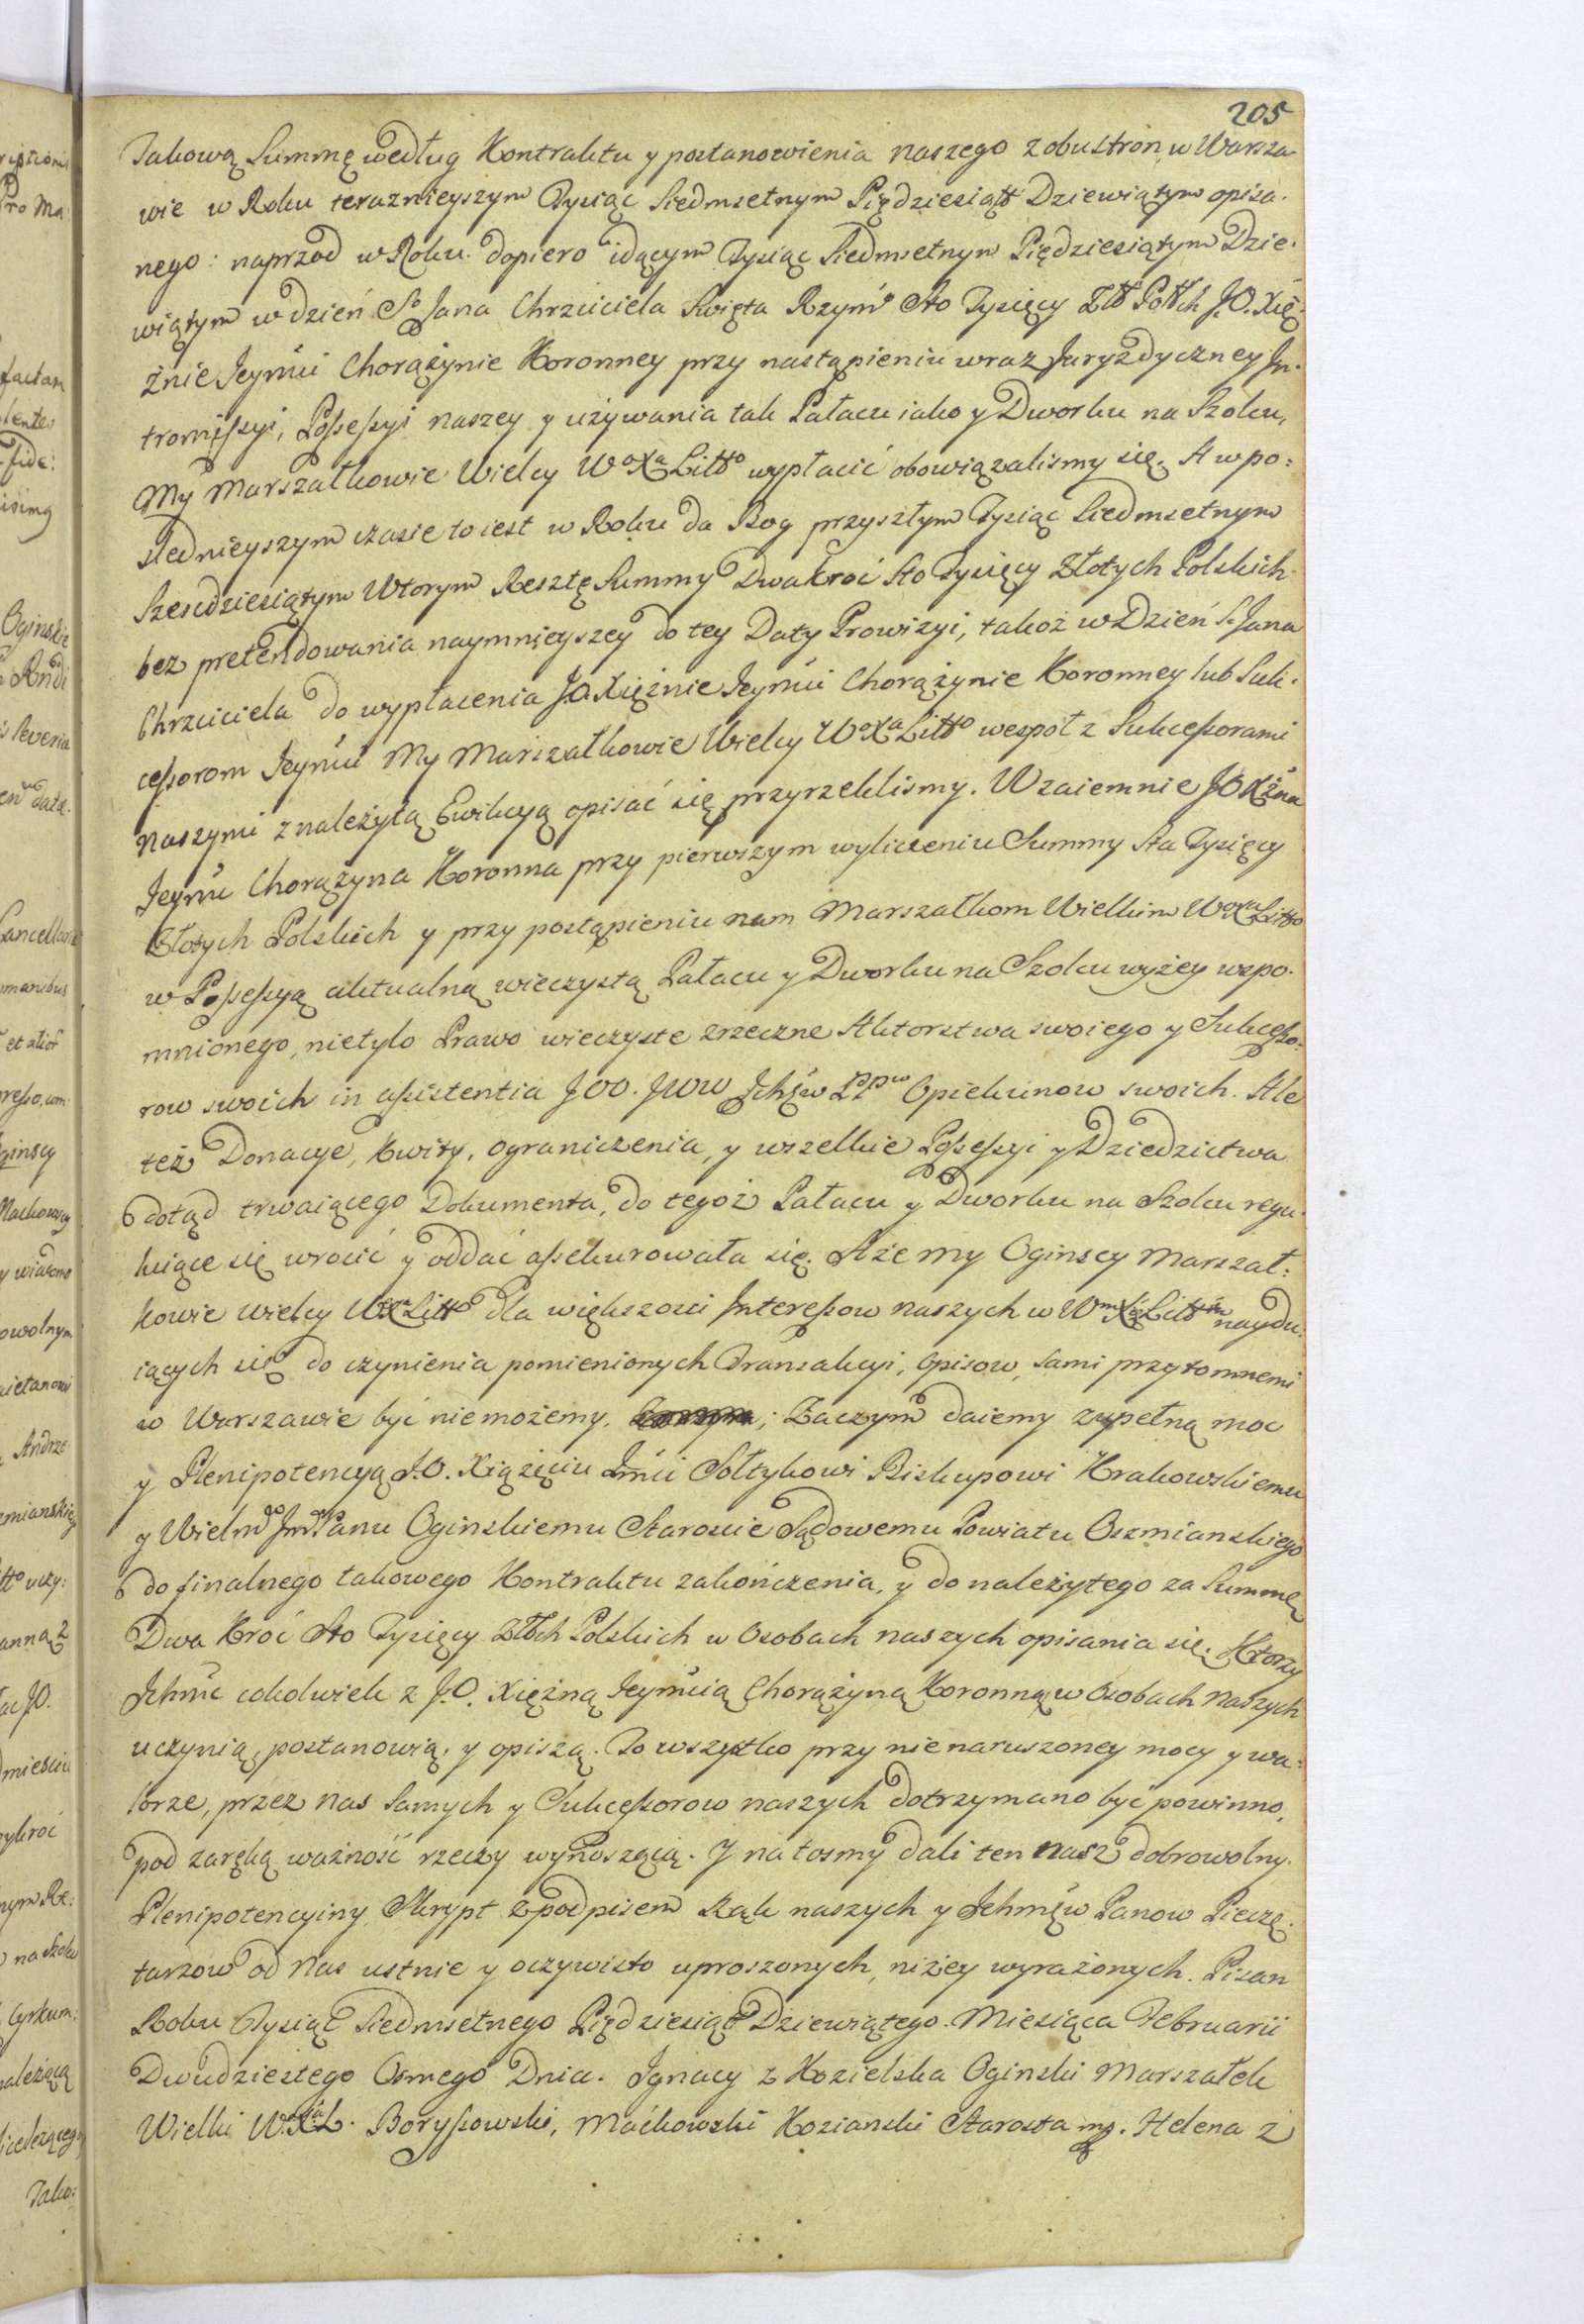 205
Takową Summę według Kontraktu y postanowienia naszego z obustron w Warsza-
wie w Roku teraznieyszym Tysiąc Siedmsetnym Pięćdziesiąt Dziewiątym opisa-
nego: naprzod w Roku dopiero idącym Tysiąc Siedmsetnym Pięćdziesiątym Dzie-
wiątym w dzień So Jana Chrzciciela Święta Rzymo Sto Tysięcy Złt Polch J.O. Xię-
żnie Jeymci Chorążynie Koronney przy nastąpieniu wraz Juryzdyczney In-
tromissyi, Possessyi naszey y używania tak Pałacu iako y Dworku na Szolcu,
My Marszałkowie Wielcy WoXa Litto wypłacić obowiązalismy się. A w po=
slednieyszym czasie to iest w Roku da Bog przyszłym Tysiąc Siedmsetnym
Szescdziesiątym Wtorym Resztę Summy Dwakroć Sto Tysięcy Złotych Polskich
bez pretendowania naymnieyszey do tey Daty Prowizyi, takoż w Dzień S. Jana
Chrzciciela do wypłacenia J.O. Xiężnie Jeymci Chorążynie Koronney lub Suk-
cessorom Jeymci My Marszałkowie Wielcy WoXa Litto wespoł z Sukcessorami
naszymi z należytą Ewikcyą opisać się przyrzeklismy. Wzaiemnie JO Xżna
Jeymć Chorążyna Koronna przy pierwszym wyliczeniu Summy Sta Tysięcy
Złotych Polskich y przy postąpieniu nam Marszałkom Wielkim WoXa Litto
w Possessyą aktualną wieczystą Pałacu y Dworku na Szolcu wyżey wspo-
mnionego, nietylo Prawo wieczyste zrzeczne Aktorstwa swoiego y Sukcesso=
row swoich in assistentia JOO. JWW Ichmw PPw Opiekunow swoich. Ale
też Donacye, Kwity, ograniczenia, y wszelkie Possessyi y Dziedzictwa
dotąd trwaiącego Dokumenta, do tegoż Pałacu y Dworku na Szolcu regu-
luiące się wrocić y oddać assekurowała się. A że my Oginscy Marszał=
kowie Wielcy WoXa Litto dla większosci Interessow naszych w Wm Xie Littm naydu-
iących się do czynienia pomienionych Transakcyi, opisow, sami przytomnemi
w Warszawie być nie możemy. ; Zaczym daiemy zupełną moc
y Plenipotencyą J.O. Xiążęciu Jmci Sołtykowi Biskupowi Krakowskiemu
y Wielmo Jmo Panu Oginskiemu Staroscie Sądowemu Powiatu Oszmianskiego
do finalnego takowego Kontraktu zakończenia, y do należytego za Summę
Dwa Kroć Sto Tysięcy Złłch Polskich w Osobach naszych opisania się. Ktorzy
Ichmć cokolwiek z J.O. Xiężną Jeymcią Chorążyną Koronną w Osobach Naszych
uczynią, postanowią, y opiszą. To wszystko przy nienaruszoney mocy y wa=
lorze, przez nas samych y Sukcessorow naszych dotrzymano być powinno,
pod zaręką ważność rzeczy wynoszącą. Y na tosmy dali ten nasz dobrowolny
Plenipotencyiny Skrypt z podpisem Rąk naszych y Ichmćw Panow Pieczę-
tarzow od Nas ustnie y oczywisto uproszonych, niżey wyrażonych. Pisan
Roku Tysiąc Siedmsetnego Pięćdziesiąt Dziewiątego. Miesiąca Februarii
Dwudziestego Osmego Dnia. Ignacy z Kozielska Oginski Marszałek
Wielki W.X.L. Borysowski, Maćkowski Kozianski Starosta mp. Helena z